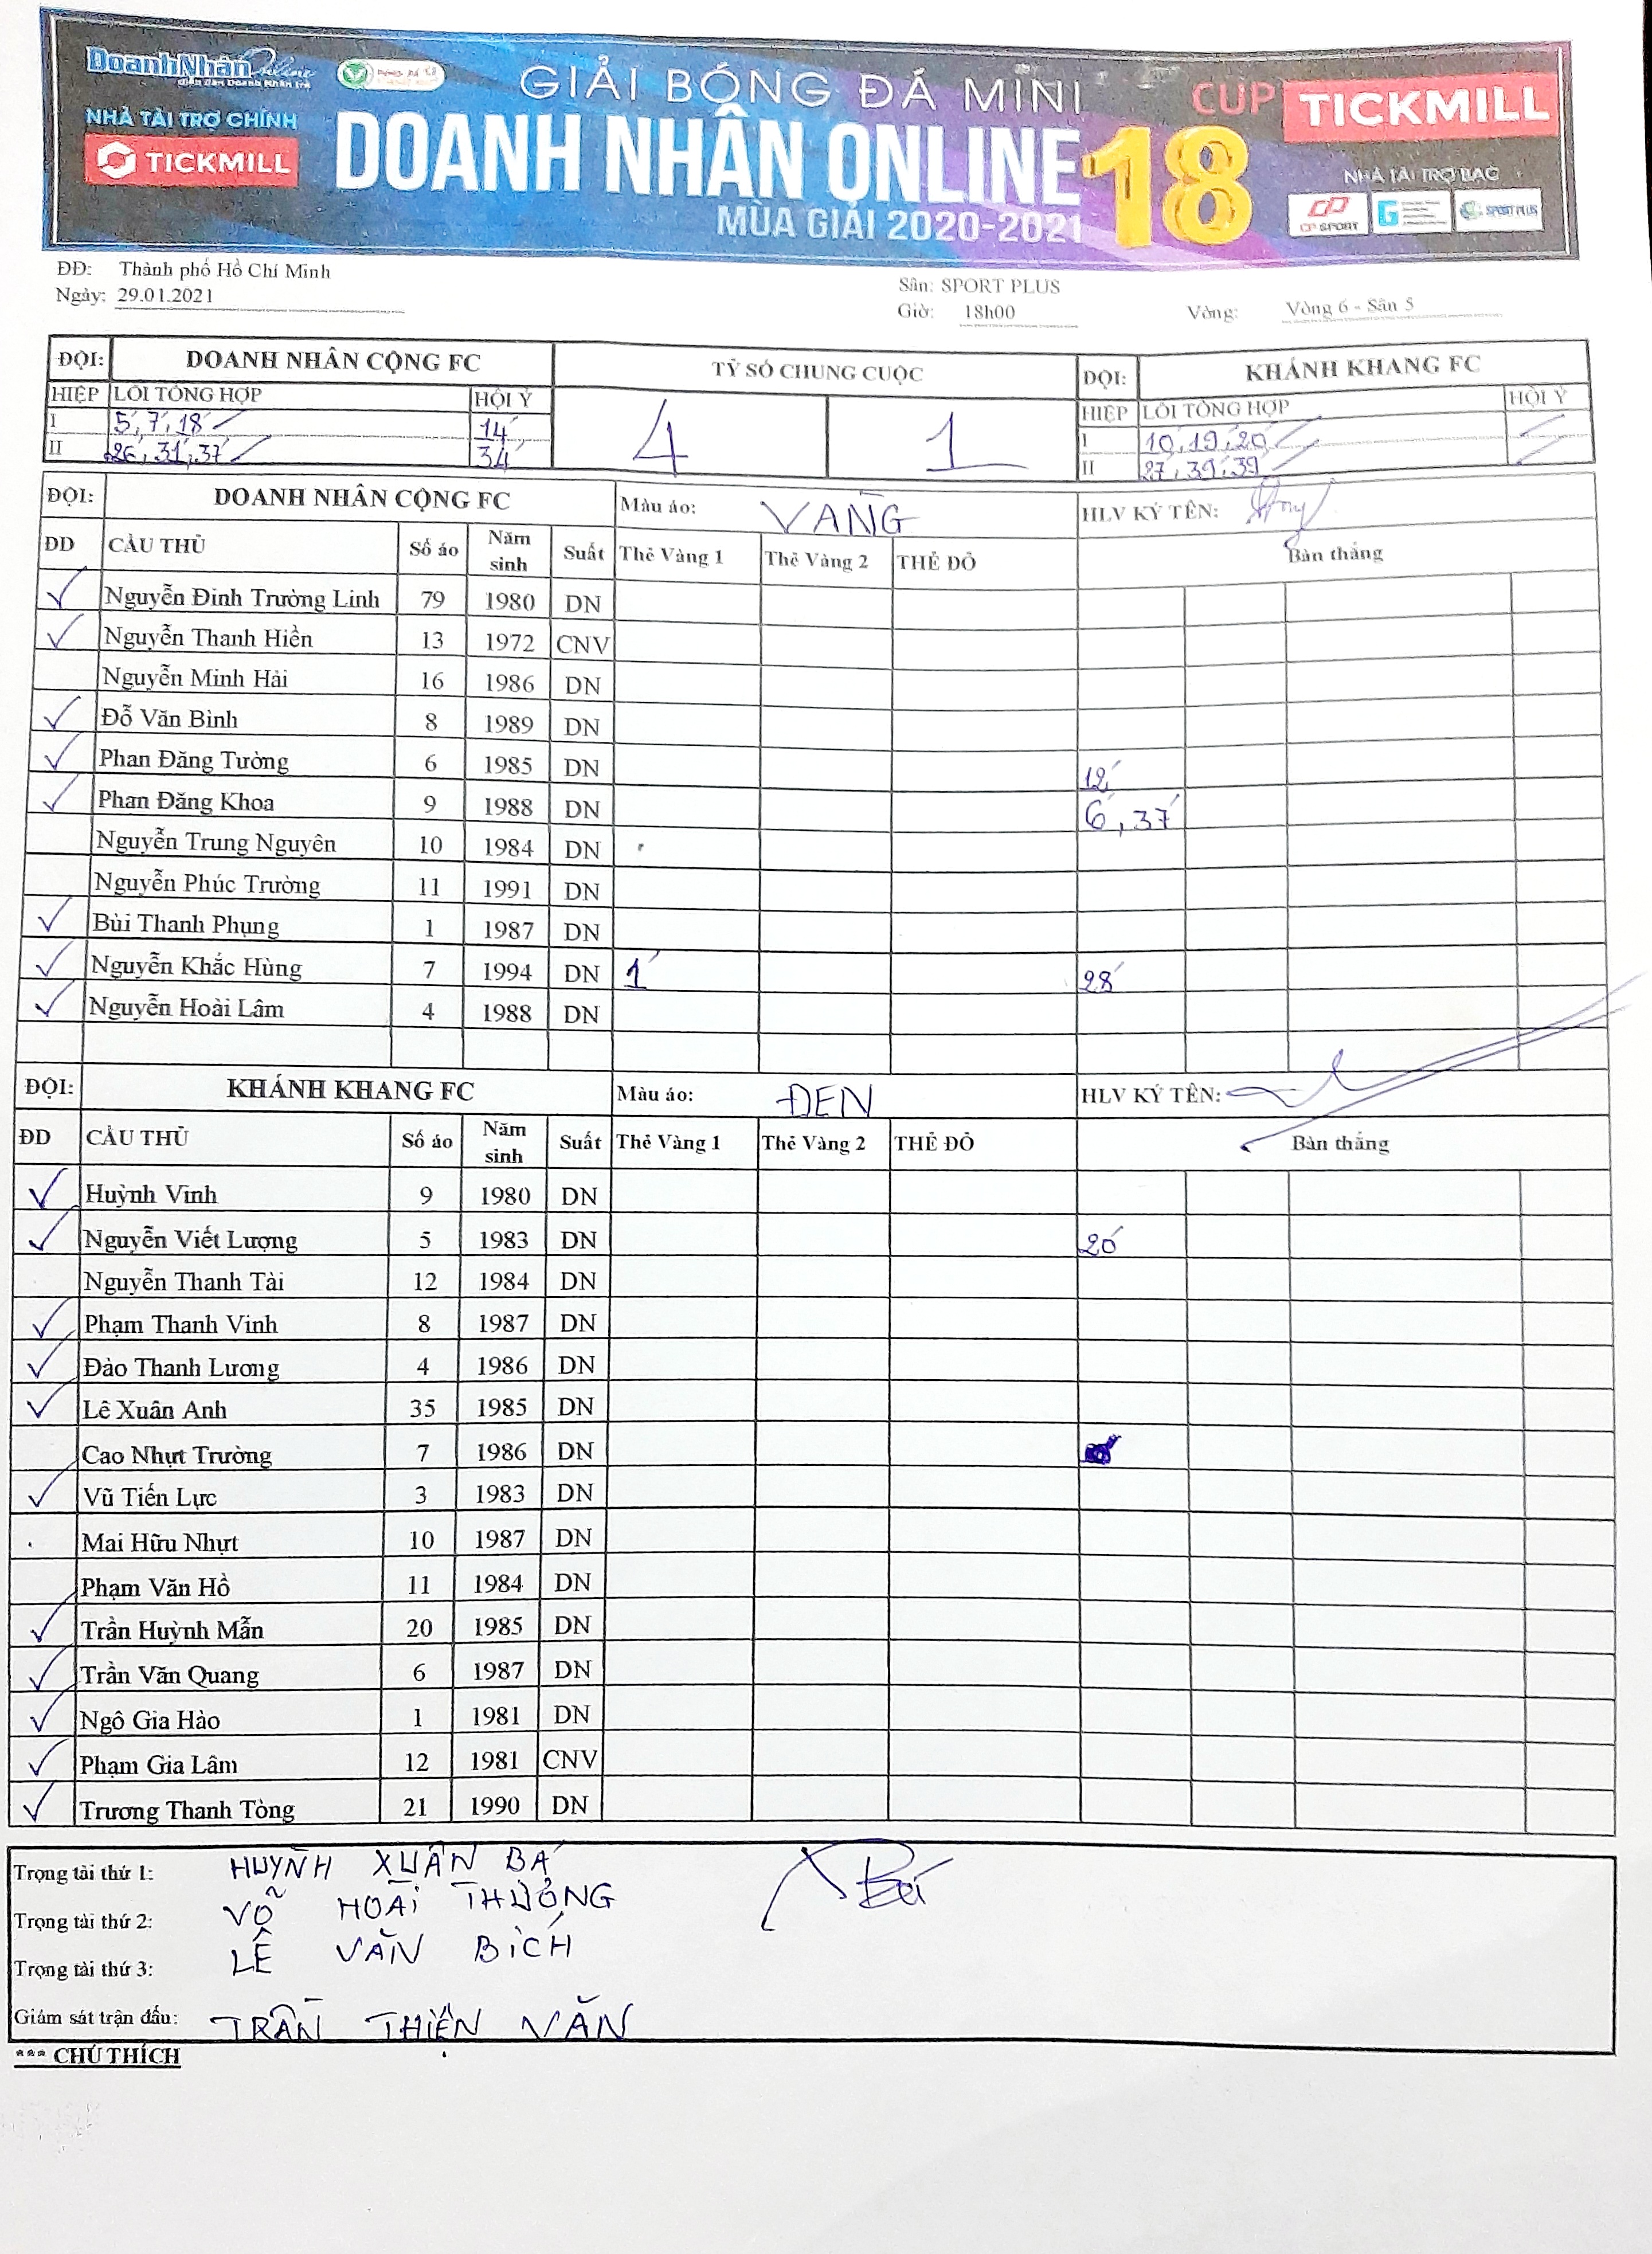 DoanhNhân Online
diễn đàn Doanh Nhân trẻ
NHÀ TÀI TRỢ CHÍNH
TICKMILL
GIẢI BÓNG ĐÁ MINI
DOANH NHÂN ONLINE 18
MÙA GIẢI 2020-2021
CUP TICKMILL
NHÀ TÀI TRỢ BẠC
CP SPORT
SPORT PLUS
ĐĐ: Thành phố Hồ Chí Minh
Ngày: 29.01.2021
Sân: SPORT PLUS
Giờ: 18h00
Vòng: Vòng 6 - Sân 5
ĐỘI: DOANH NHÂN CỘNG FC TỶ SỐ CHUNG CUỘC ĐỘI: KHÁNH KHANG FC
HIỆP LỖI TỔNG HỢP HỘI Ý 4 1 HIỆP LỖI TỔNG HỢP HỘI Ý
I 5', 7', 18' 14' I 10', 19', 20'
II 26', 31', 37' 34' II 27', 39', 39'
ĐỘI: DOANH NHÂN CỘNG FC Màu áo: VÀNG HLV KÝ TÊN:
ĐD CẦU THỦ Số áo Năm sinh Suất Thẻ Vàng 1 Thẻ Vàng 2 THẺ ĐỎ Bàn thắng
✓ Nguyễn Đình Trường Linh 79 1980 DN
✓ Nguyễn Thanh Hiền 13 1972 CNV
Nguyễn Minh Hải 16 1986 DN
✓ Đỗ Văn Bình 8 1989 DN
✓ Phan Đăng Tường 6 1985 DN 12'
✓ Phan Đăng Khoa 9 1988 DN 6', 37'
Nguyễn Trung Nguyên 10 1984 DN
Nguyễn Phúc Trường 11 1991 DN
✓ Bùi Thanh Phụng 1 1987 DN
✓ Nguyễn Khắc Hùng 7 1994 DN 1' 28'
✓ Nguyễn Hoài Lâm 4 1988 DN
ĐỘI: KHÁNH KHANG FC Màu áo: ĐEN HLV KÝ TÊN:
ĐD CẦU THỦ Số áo Năm sinh Suất Thẻ Vàng 1 Thẻ Vàng 2 THẺ ĐỎ Bàn thắng
✓ Huỳnh Vinh 9 1980 DN
✓ Nguyễn Viết Lượng 5 1983 DN 20'
Nguyễn Thanh Tài 12 1984 DN
✓ Phạm Thanh Vinh 8 1987 DN
✓ Đào Thanh Lương 4 1986 DN
✓ Lê Xuân Anh 35 1985 DN
Cao Nhựt Trường 7 1986 DN
✓ Vũ Tiến Lực 3 1983 DN
Mai Hữu Nhựt 10 1987 DN
Phạm Văn Hồ 11 1984 DN
✓ Trần Huỳnh Mẫn 20 1985 DN
✓ Trần Văn Quang 6 1987 DN
✓ Ngô Gia Hào 1 1981 DN
✓ Phạm Gia Lâm 12 1981 CNV
✓ Trương Thanh Tòng 21 1990 DN
Trọng tài thứ 1: HUỲNH XUÂN BÁ
Trọng tài thứ 2: VÕ HOÀI THƯỞNG
Trọng tài thứ 3: LÊ VĂN BÍCH
Giám sát trận đấu: TRẦN THIỆN VĂN
*** CHÚ THÍCH